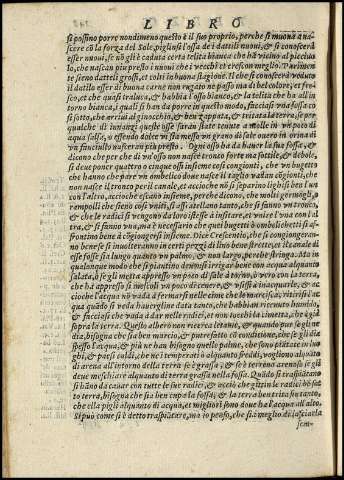 LIBRO
si possino porre nondimeno questo è il suo proprio, perche si muoua a na-
scere cõ la forza del Sole, piglinsi l'ossa de i dattili nuoui, & si conoscerà
esser nuoui, se nõ gli è caduta certa telita bianca che hà vicino al picchuo
lo, che nascan piu presto i nuoui che i vecchi et crescon meglio. Parimen-
te sieno datteli grossi, et colti in buona stagione. Il che si conoscerà veduto
il dattilo esser di buona carne non rugato ne passo ma di bel colore, et fre-
sco, et che quasi traluca, & habbia l'osso bianco, & la telita che hà all'in
torno bianca, i quali si han da porre in questo modo, facciasi vna fossa co
si fatta, che arriui al ginocchio, & ben zappata, & tritata la terra, se per
qualche dì innanzi queste osse sarãn state tenute a molle in vn poco di
acqua salsa, o essendo dolce vi sia messo vn grano di sale ouero in orina di
vn fanciullo nasceran piu presto. Ogni osso ha da hauer la sua fossa, &
dicono che per che di vn'osso non nasce tronco forte ma sottile, & debole,
si dee poner quattro o cinque ossi insieme così congionti, che vn bughetto
che hanno che pare vn ombelico donde nasce il taglio vadan cõgionti, che
non nasce il tronco per il canale, et accioche nõ si separino lighisi ben l'un
con l'altro, accioche escano insieme, perche dicono, che molti germogli,
rampolli che sieno così vniti, si assottigliano tanto, che si fanno vn tronco,
& che le radici si vengono da loro istesse a insitare, et vnisce l'vna con l'al
tra, & si fanno vna, ma è necessario che quei bugetti ò ombelichetti si af-
frontino bene à cõgiongersi insieme. Dice Crescentio, che si congiongeran-
no bene se si inuolteranno in certi pezzi di lino bene strette, et il canale di
esse fosse sia lungo quanto vn palmo, & non largo, perche stringa. Ma in
qualunque modo che si piantino deuonsi irrigar bene con acqua alquanto
salata, ò se gli metta appresso vn poco di sale à torno, ò vero con la terra,
che ha appresso si mescoli vn poco di cenere, & vissi a inacquarle, & ac
cioche l'acqua nõ vada a fermarsi nelle cime che lo marcisca, ritirisi l'ac
qua quãdo si veda hauergliene data tanta, che habbian riceuuto humido,
& facciasi che vada a dar nelle radici, et non tocchi la cimetta, che è già
sopra la terra. Questo albero non ricerca letame, & quando pur se gli ne
dia, bisogna che sia ben marcio, & pure fatto cõ conditione, che se gli dia
spesso l'acqua, & piu ne han bisogno quelle palme, che sono piãtate in luo
ghi, & paesi caldi, che ne i temperati ò alquanto freddi, vogliono alquãto
di arena all'intorno della terra se è grassa, & se è terreno arenoso se gli
deue meschiare alquanto di terra grassa nella fossa. Quãdo si traspiãtano
si hãno da cauare con tutte le sue radici, & accio che gittin le radici bẽ sot
to terra, bisogna che sia ben cupa la fossa, & la terra ben trita fin tanto,
che ella pigli alquanto di acqua, et migliori sono doue ha l'acqua all'alto.
Si può come si è detto traspiãtare, ma io pẽso, che sia meglio di lasciarla
sem-